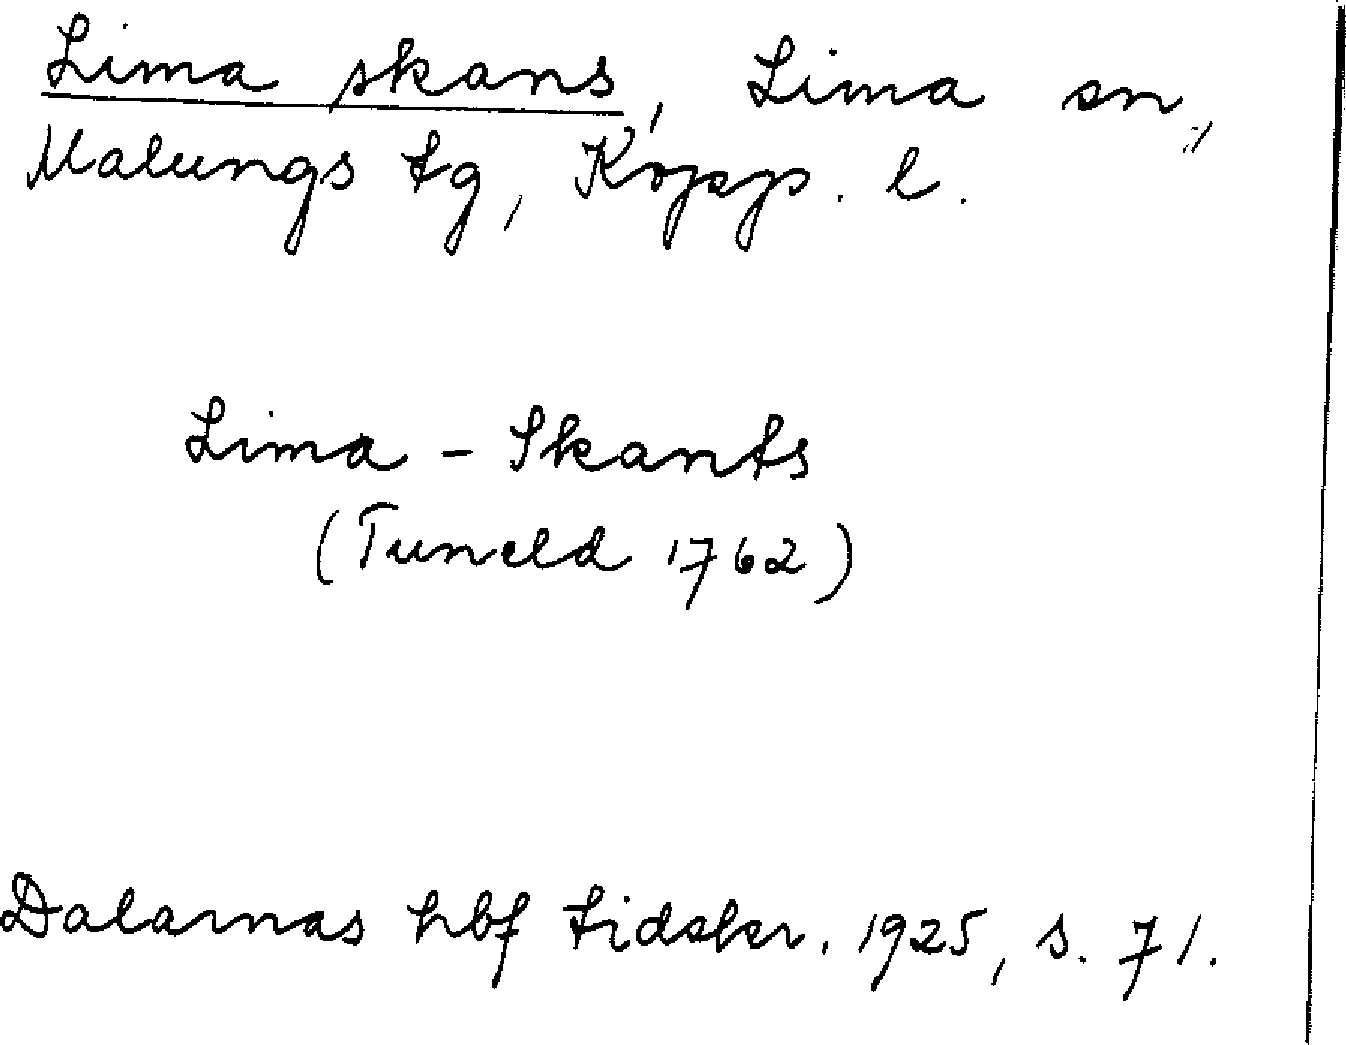 Lima skans, Lima sn,
Malungs tg, Kopp. l.
Lima - Skants
(Tuneld 1762)
Dalarnas hbf tidskr. 1925, s. 71.